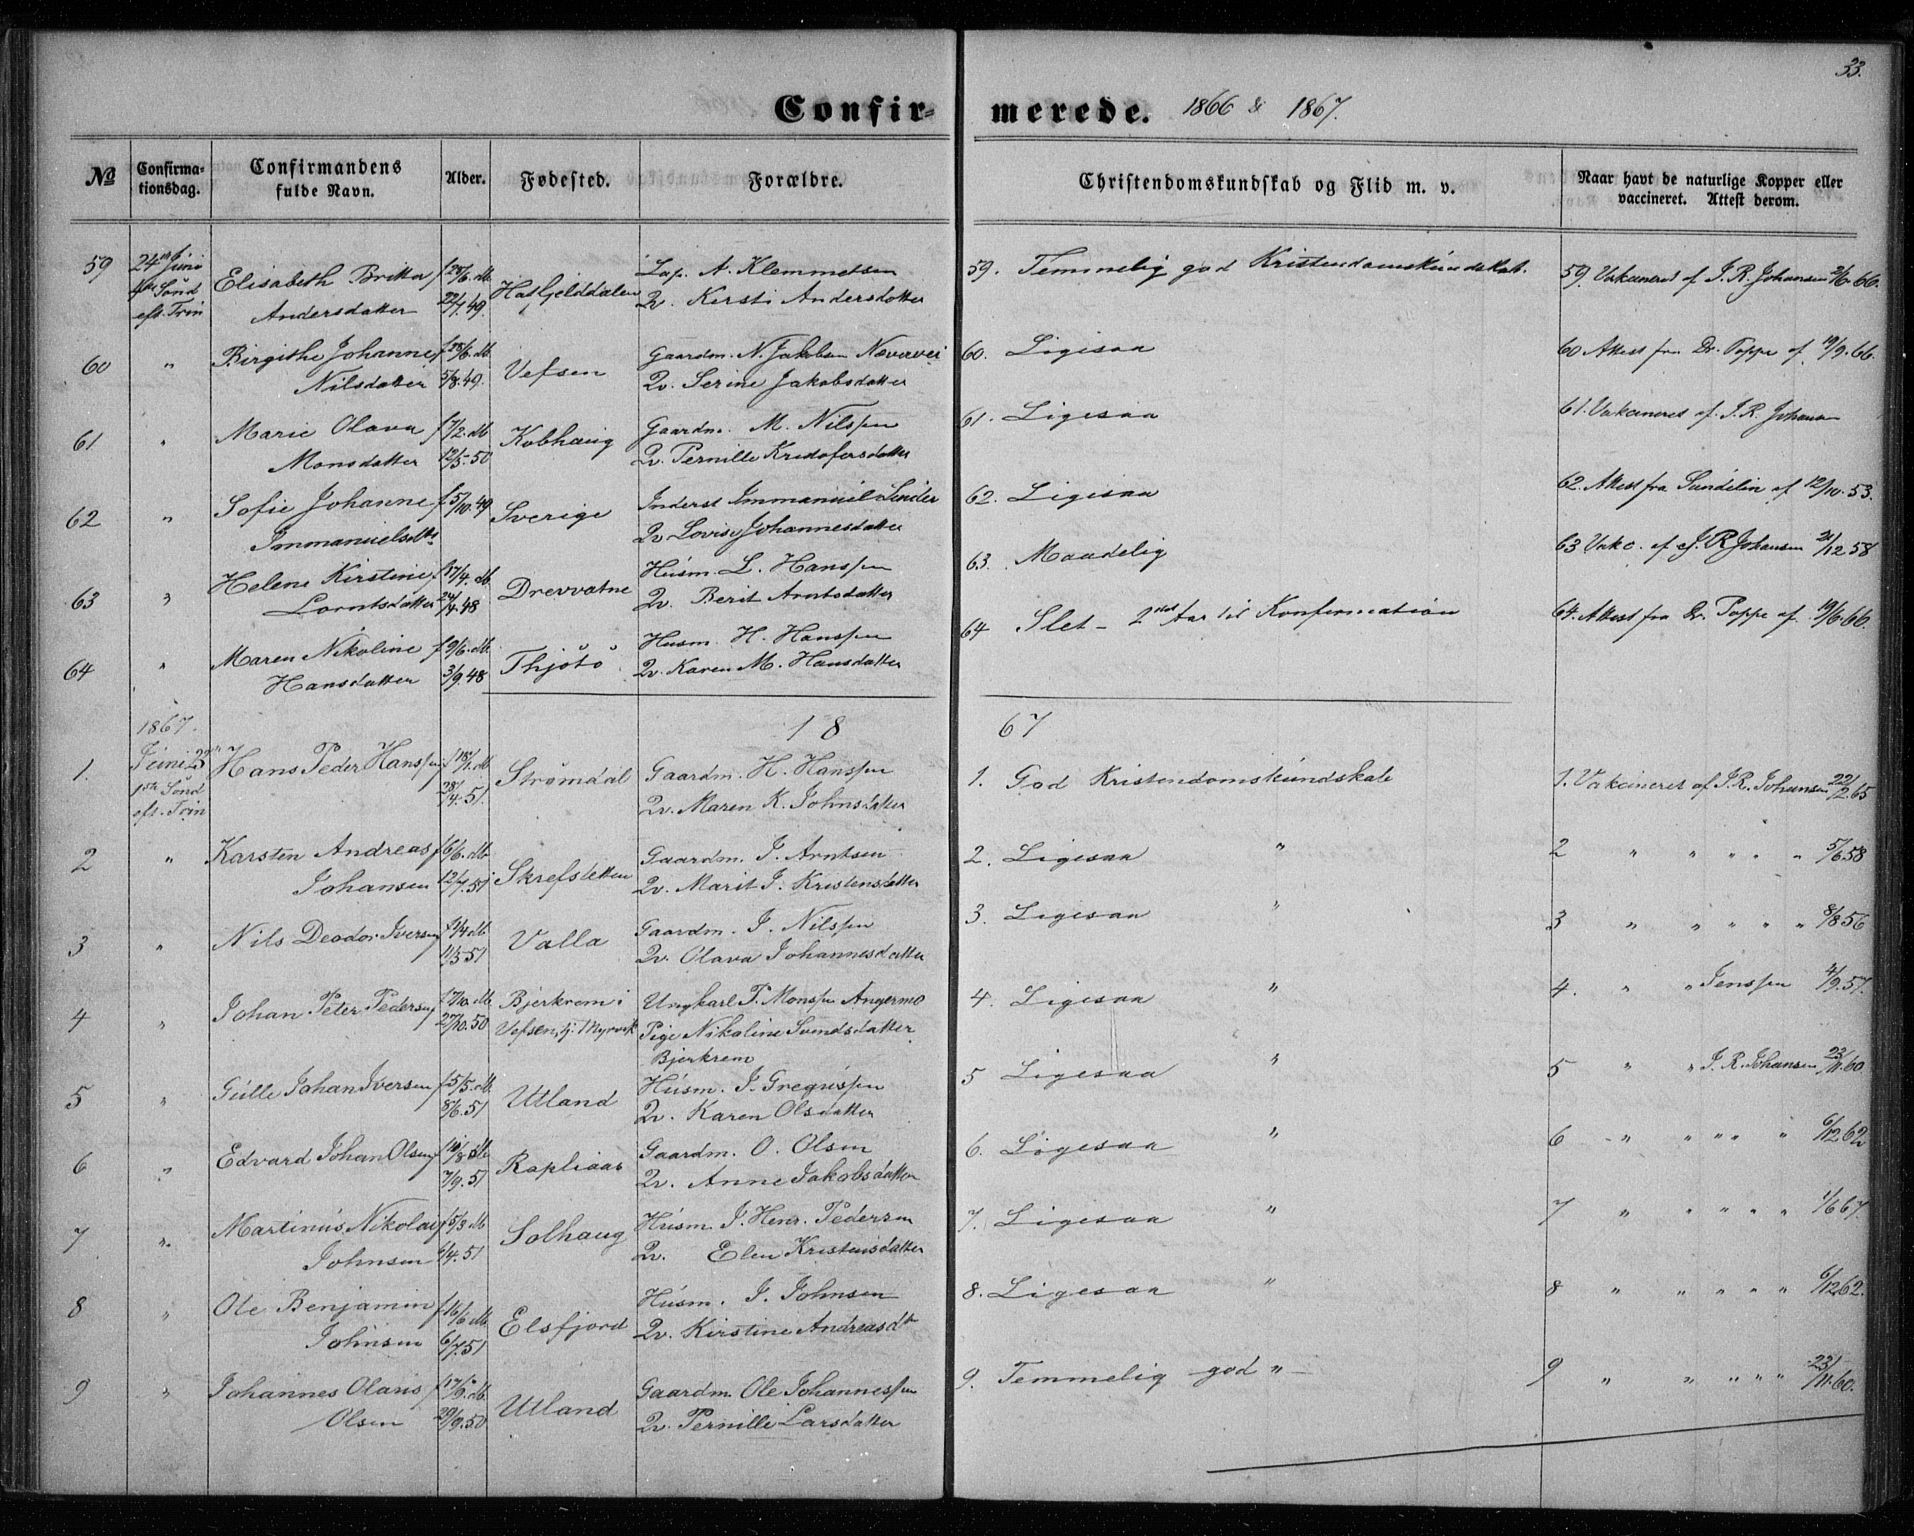 33.
Confirmerede. 1866 & 1867.
№ Confirmationsdag. Confirmandens fulde Navn. Alder. Fødested. Forældre. Christendomskundskab og Flid m. v. Naar havt de naturlige Kopper eller vaccineret. Attest derom.
59 24 Juni 4de Sønd eft. Trin
Elisabeth Britta Andersdatter
22/7.49. Hatfjelddalen
Lap. A. Klemmetsen
Qv. Kersti Andersdatter
59. Temmelig god Kristendomskundskab.
59. Vakcineret af J. R. Johansen
60 " Birgithe Johanne Nilsdatter
5/8.49. Vefsen
Gaardm. N. Jakobsen Nævervei
Qv. Serine Jakobsdatter
60. Ligesaa
60 Attest fra Dr. Poppe af 19/9.66.
61 " Marie Olava Monsdatter
f 7/2. db 12/5.50 Kobhaug
Gaardm. M. Nilssen
Qv. Pernille Kristofersdatter
61. Ligesaa
61. Vakcineret af J. R. Johansen
62 " Sofie Johanne Immanuelsdtr
f 5/10.49 Sverige
Inderst Immanuel Sender
Qv Lovise Johannesdatter
62. Ligesaa
62. Attest fra Sundelin af 12/10.53.
63 " Helene Kirstine Lorntsdatter
f 17/4. db 24/4.48 Drevvatne
Husm. L. Hanssen
Qv. Berit Arntsdatter
63. Maadelig
63 Vakc. af J. R Johansen 21/12 58
64 " Maren Nikoline Hansdatter
f 9/6. db 3/9.48 Thjötö
Husm. H. Hanssen
Qv. Karen M. Hansdatter
64 Slet - 2det Aar til Konfirmation
64. Attest fra Dr. Poppe af 19/6.66.
1867. 18 67
1. Juni 23 1ste Sønd eft. Trin
Hans Peder Hanssen
28/4.51. Strømdal
Gaardm. H. Hanssen
Qv. Maren K. Johnsdatter
1. God Kristendomskundskab
1. Vakcineret af J. R. Johansen 22/2.65
2 " Karsten Andreas Johansen
f 6/6. db 12/7.51 Skrefstetten
Gaardm. J. Arntsen
Qv. Marit J. Kristensdatter
2. Ligesaa "
2 " " " " " 5/6 58
3 " Nils Deodor Iversen
11/5 51 Valla
Gaardm. I. Nilssen
Qv. Olava Johannesdatter
3. Ligesaa "
3 " " " " " 8/8 56
4 " Johan Peter Pedersen
27/10.50 Bjerkrem i Vefsen, tj. Myrvik
Ungkarl P. Monssen Angermo
Pige Nikoline Svendsdatter
Bjerkrem
4. Ligesaa "
4. " " Jenssen 4/9.57.
5 " Gulle Johan Iversen
f 5/5. db 8/6.51 Utland
Husm. I. Gregussen
Qv. Karen Olsdatter
5 Ligesaa "
5 " " J. R. Johansen 23/11.60
6 " Edvard Johan Olsen
7/9.51 Rapliaas
Gaardm. O. Olsen
Qv. Anne Jakobsdatter
6. Ligesaa "
6 " " " " " 6/12 62
7 " Martinus Nikolai Johnsen
6/4.51 Solhaug
Husm. J. Henr. Pedersen
Qv. Elen Kristensdatter
7. Ligesaa "
7 " " " " " 1/6 67.
8 " Ole Benjamin Johnsen
f 16/6 db 6/7.51 Elsfjord
Husm. J. Johnsen
Qv. Kirstine Andreasdtr
8. Ligesaa "
8 " " " " " 6/12 62.
9 " Johannes Olaris Olsen
29/9.50 Utland
Gaardm. Ole Johannessen
Qv. Pernille Larsdatter
9. Temmelig god "
9 " " " " " 23/11.60.